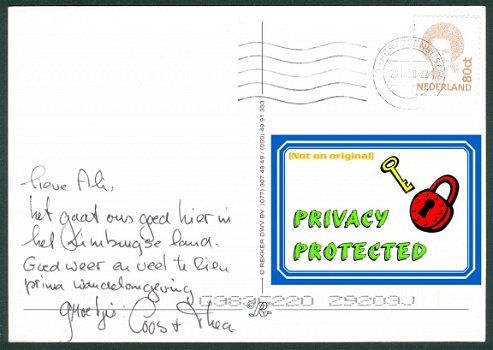 lieve Ali,
het gaat ons goed hier in
het Limburgse land.
Goed weer en veel te zien
prima wandelomgeving
groetjes Coos & Thea
© REKKER DWV BV (077) 307 48 49 / (050) 40 91 333
80ct
NEDERLAND
(Not on original)
PRIVACY
PROTECTED